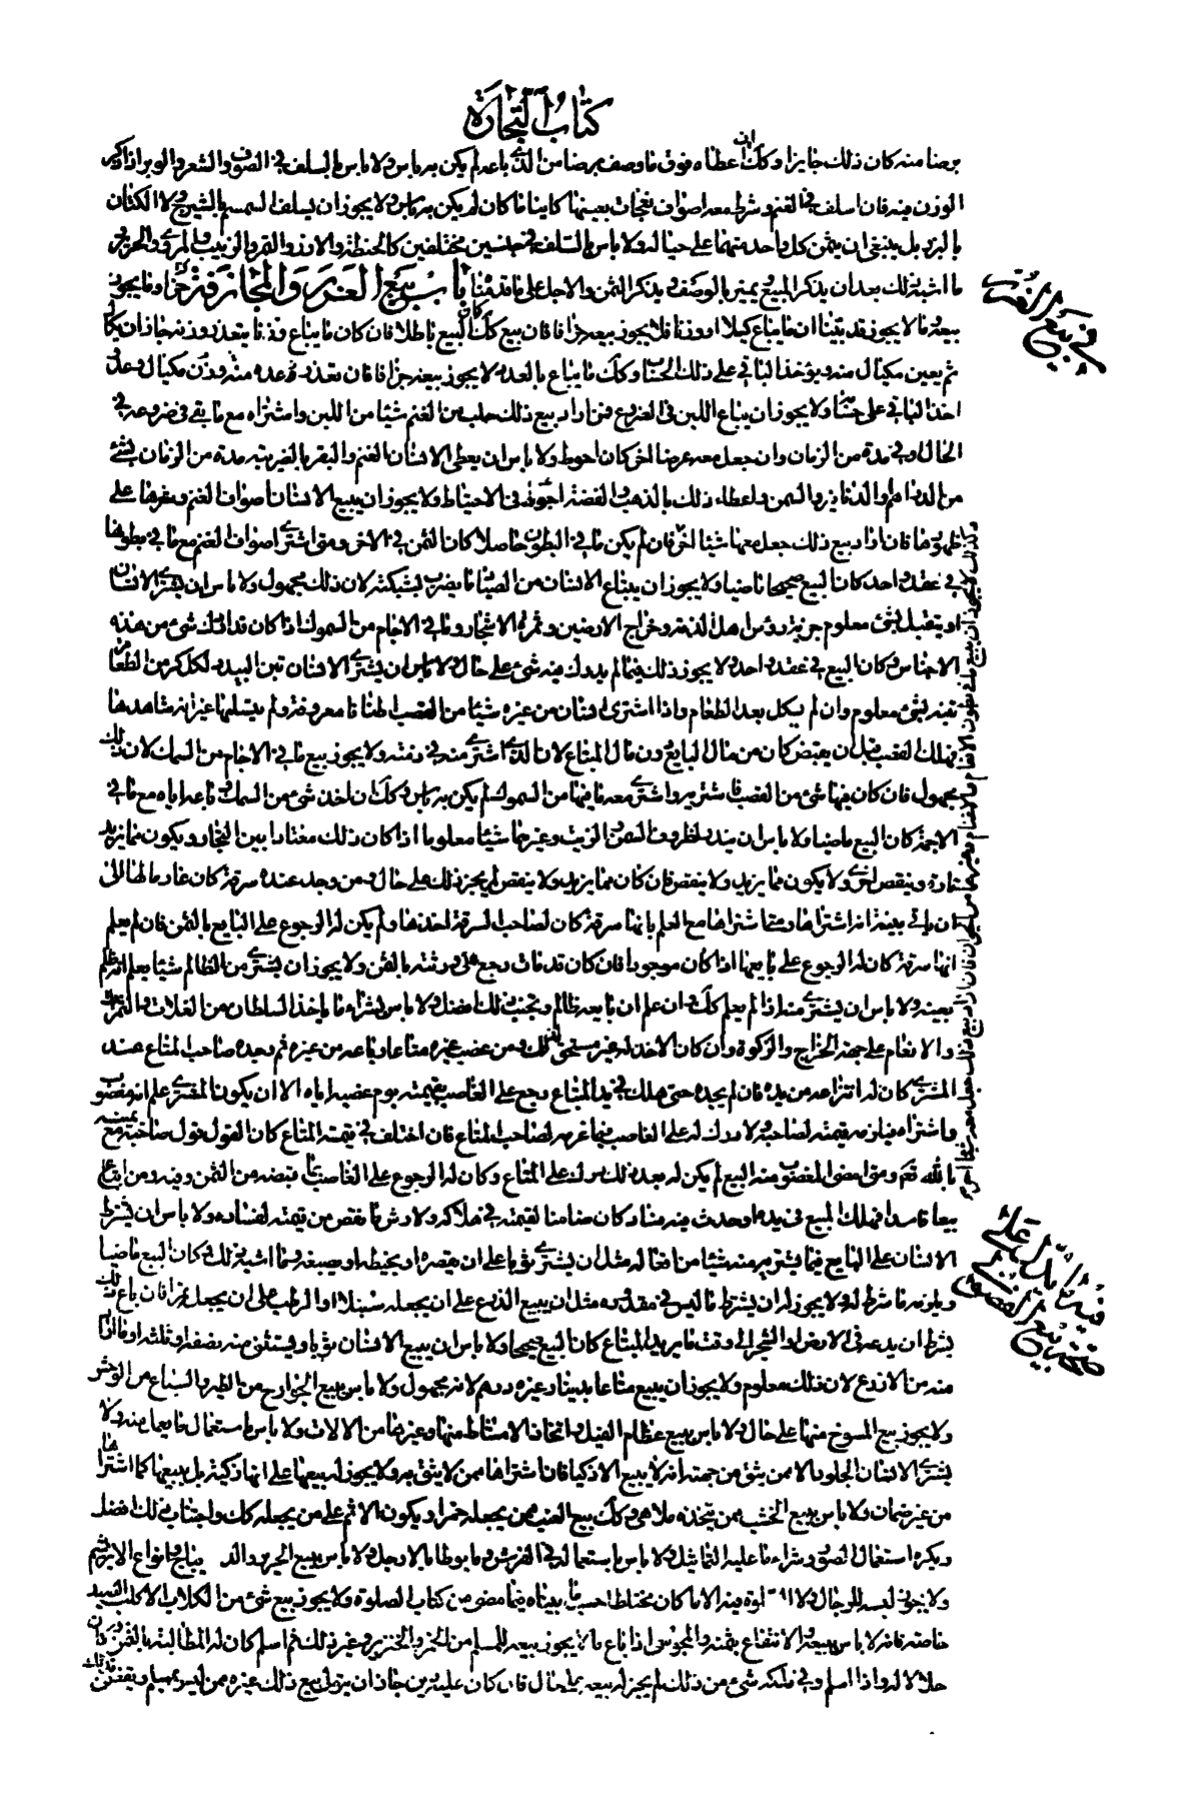 كتاب التجارة
برضا منه كان ذلك جايزا وكك ان اعطاه فوق ما وصف برضا من الذى باعه لم يكن به باس ولا باس بالسلف فى الصوف والشعر والوبر اذا ذكر
الوزن فيه فان اسلف فى الغنم وشرط معه اصواف نعجات بعينها كاينا ما كان لم يكن به باس ولا يجوز ان يسلف السمسم بالشيرج ولا الكتان
بالبزر بل ينبغى ان يثمن كل واحد منهما على حياله ولا باس بالسلف فى جنسين مختلفين كالحنطة والارز والتمر والزبيب والمروى والحرير
ما اشبه ذلك بعد ان يذكر المبيع يميز بالوصف ويذكر الثمن والاجل على ما قدمناه باب بيع الغرر والمجازفة وما يجوز
بيعه وما لا يجوز قد بينا ان ما يباع كيلا او وزنا فلا يجوز بيعه جزافا فان بيع كك كان البيع باطلا فان كان ما يباع وزنا يتعذر وزنه جاز ان يكال
ثم يعين مكيال منه ويؤخذ الباقى على ذلك الحساب وكك ما يباع بالعدد لا يجوز بيعه جزافا فان تعذر عده وزن منه مكيال وعد
اخذ الباقى على حسابه ولا يجوز ان يباع اللبن فى الضروع فمن اراد بيع ذلك حلب من الغنم شيئا من اللبن واشتراه مع ما بقى فى ضروعه فى
الحال او فى مدة من الزمان وان جعل معه عرضا اخر كان احوط ولا باس ان يعطى الانسان الغنم والبقر بالضريبة مدة من الزمان بشئ
من الدراهم والدنانير والسمن واعطاء ذلك بالذهب والفضة اجود فى الاحتياط ولا يجوز ان يبيع الانسان اصواف الغنم وشعرها على
ظهورها فان اراد بيع ذلك جعل معها شيئا اخر فان لم يكن ما فى البطون حاصلا كان الثمن فى الاخر ومتى اشترى اصواف الغنم مع ما فى بطونها
فى عقد واحد كان البيع صحيحا ماضيا ولا يجوز ان يبتاع الانسان من الصياد ما يضرب بشبكته لان ذلك مجهول ولا باس ان يشترى الانسان
او يتقبل بشئ معلوم جزية رؤس اهل الذمة وخراج الارضين وثمرة الاشجار وما فى الاجام من السموك اذا كان قد ادرك شئ من هذه
الاجناس وكان البيع فى عقد واحد ولا يجوز ذلك فيما لم يدرك منه شئ على حال ولا باس ان يشترى الانسان تبن البيدر لكل كر من الطعام
تبنه بشئ معلوم وان لم يكل بعد الطعام واذا اشترى انسان من غيره شيئا من القصب اطنانا معروفة ولم يتسلمها غير انه شاهدها
فهلك القصب قبل ان يقبض كان من مال البايع دون مال المبتاع لان الذى اشترى منه فى ذمته ولا يجوز بيع ما فى الاجام من السمك لان ذلك
مجهول فان كان فيها شئ من القصب فاشتريه واشترى معه ما فيها من السموك لم يكن به باس وكك ان اخذ شئ من السمك وباعه اياه مع ما فى
الاجمة كان البيع ماضيا ولا باس ان يندر لظروف السمن والزيت وغيرهما شيئا معلوما اذا كان ذلك معتادا بين التجار ويكون مما يزيد
تارة وينقص اخرى ولا يكون مما يزيد ولا ينقص فان كان مما يزيد ولا ينقص لم يجز ذلك على حال ومن وجد عنده سرقة كان غارما لها الا
ان ياتى ببينة انه اشتراها ومتى اشتراها مع العلم بانها سرقة كان لصاحب السرقة اخذها ولم يكن له الرجوع على البايع بالثمن فان لم يعلم
انها سرقة كان له الرجوع على بايعها اذا كان موجودا فان كان قد مات رجع على ورثته بالثمن ولا يجوز ان يشترى من الظالم شيئا يعلم انه ظلم
بعينه ولا باس ان يشترى منه اذا لم يعلم كك وان علم ان بايعه ظالم وتجنب ذلك افضل ولا باس بشراء ما ياخذ السلطان من الغلات والثمرات
والانعام على جهة الخراج والزكوة وان كان الاخذ له غير مستحق لذلك ومن غصب غيره متاعا وباعه من غيره ثم وجده صاحب المتاع عند
المشترى كان له انتزاعه من يده فان لم يجده حتى هلك فى يد المبتاع رجع على الغاصب بقيمته يوم غصبه اياه الا ان يكون المشترى علم انه مغصوب
واشتراه فيلزمه قيمته لصاحبه ولا درك له على الغاصب فيما غرمه لصاحب المتاع فان اختلف فى قيمة المتاع كان القول قول صاحبه مع يمينه
بالله تعم ومتى امضى المغصوب منه البيع لم يكن له بعد ذلك درك على المبتاع وكان له الرجوع على الغاصب بما قبضه من الثمن وفيه ومن ابتاع
بيعا فاسدا فهلك المبيع فى يده او حدث فيه فساد كان ضامنا لقيمته فى هلاكه ولارش ما نقص من قيمته لفساده ولا باس ان يشترط
الانسان على البايع فيما يشتريه منه شيئا من افعاله مثل ان يشترى ثوبا على ان يقصره او يخيطه او يصبغه وما اشبه ذلك وكان البيع ماضيا
ويلزمه ما شرط له ولا يجوز له ان يشترط ما ليس فى مقدوره مثل ان يبيع الزرع على ان يجعله سنبلا او الرطب على ان يجعله تمرا فان باع ذلك
بشرط ان يدعه فى الارض او الشجر الى وقت ما يريد المبتاع كان البيع صحيحا ولا باس ان يبيع الانسان ثوبا ويستثنى منه نصفه او ثلثه او ما اراد
منه من الاذرع لان ذلك معلوم ولا يجوز ان يبيع متاعا بدينار غير درهم لانه مجهول ولا باس ببيع الجوارح من الطير والسباع من الوحش
ولا يجوز بيع المسوخ منها على حال ولا باس ببيع عظام الفيل واتخاذ الامشاط منها وغيرها من الالات ولا باس باستعمال ما يعمل منه ولا
يشترى الانسان الجلود الا ممن يثق من جهته انه لا يبيع الا ذكيا فان اشتراها ممن لا يثق به ولا يجوز له بيعها على انها ذكية بل يبيعها كما اشتراها
من غير ضمان ولا باس ببيع الخشب ممن يتخذه ملاهى وكك بيع العنب ممن يجعله خمرا ويكون الاثم على من يجعله كك واجتناب ذلك افضل
ويكره استعمال الصور وشراء ما عليه التماثيل ولا باس باستعماله فى الفرش وما يوطا بالارجل ولا باس ببيع الحرير والديباج وانواع الابريشم
ولا يجوز لبسه للرجال ولا الصلوة فيه الا ما كان مختلطا حسب ما بيناه فيما مضى من كتاب الصلوة ولا يجوز بيع شئ من الكلاب الا كلب الصيد
خاصة فانه لا باس ببيعه والانتفاع بثمنه والمجوس اذا باع ما لا يجوز بيعه للمسلم من الخمر والخنزير وغير ذلك ثم اسلم كان له المطالبة بالثمن وكان
حلالا له واذا اسلم وفى ملكه شئ من ذلك لم يجز له بيعه على حال فان كان عليه دين جاز ان يتولى بيع ذلك غيره ممن ليس بمسلم ويقضى
فى بيع الغرر
وكذلك لا يجوز ان يبيع ما فى بطون الانعام والاغنام وغيرهما من الحيوان فان اراد بيع ذلك جعل معه شيئا اخر
فيه ما يدل على صحة بيع الفضولى